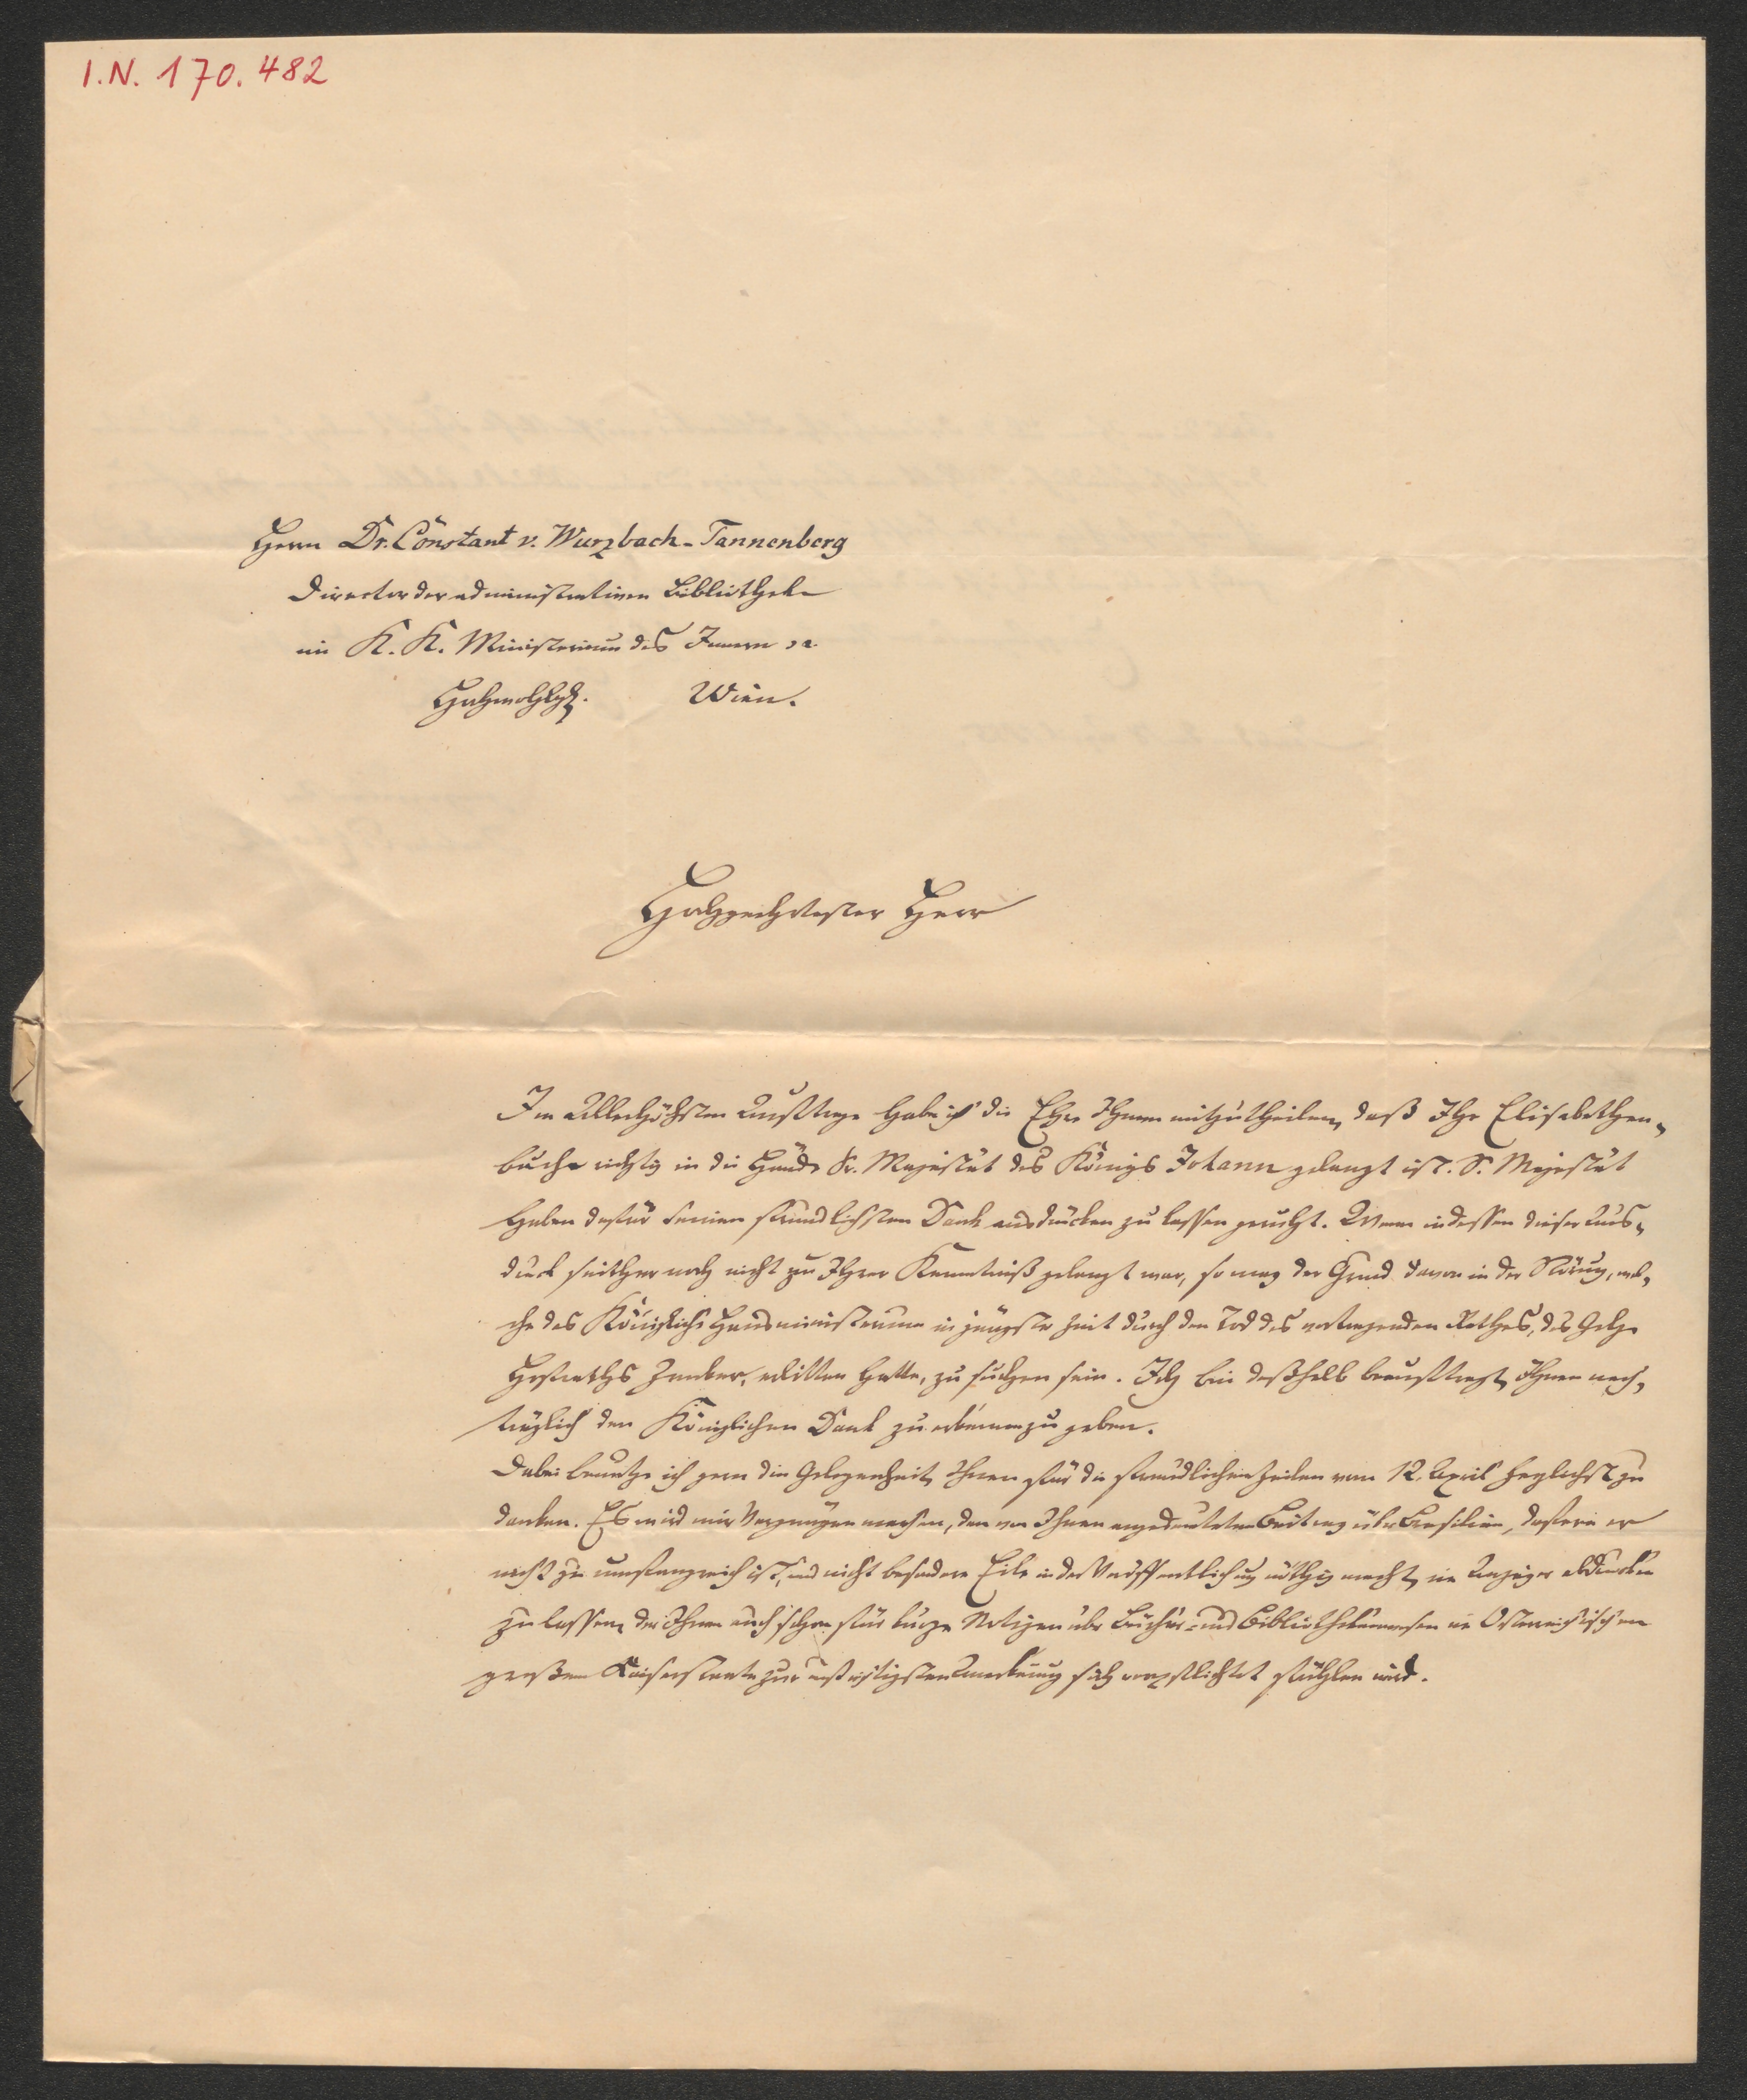 I.N. 170.482
Herrn Dr. Constant v. Wurzbach-Tannenberg
Director der administrativen Bibliothek
im K. K. Ministerium des Innern ꝛc.
Wien.
Hochgeehrtester Herr
Im Allerhöchsten Auftrage habe ich die Ehre Ihnen mitzutheilen, daß Ihr Elisabethen-
buch richtig in die Hände Sr. Majestät des Königs Johann gelangt ist. S. Majestät
haben dafür seinen freundlichsten Dank ausdrücken zu lassen geruht. Wenn indessen dieser Aus-
druck seither noch nicht zu Ihrer Kenntniß gelangt war, so mag der Grund davon in der Störung, wel-
che das Königliche Hausministerium in jüngster Zeit durch den Tod des vortragenden Rathes, des Geh.
Hofraths erlitten hatte, zu suchen sein. Ich bin deßhalb beauftragt, Ihnen nach-
träglich den Königlichen Dank zu erkennen zu geben.
Dabei benutze ich gern die Gelegenheit, Ihnen für die freundlichen Zeilen vom 12. April herzlichst zu
danken. Es wird mir Vergnügen machen, den von Ihnen angedeuteten Beitrag über Brasilien, dafern er
nicht zu umfangreich ist, und nicht besondere Eile in der Veröffentlichung nöthig macht, im Anzeiger abdrucken
zu lassen, der Ihnen auch schon für kurze Notizen über Bücher- und Bibliothekenwesen im Österreichischen
großen Kaiserstaate zur aufrichtigsten Anerkennung sich verpflichtet fühlen wird.